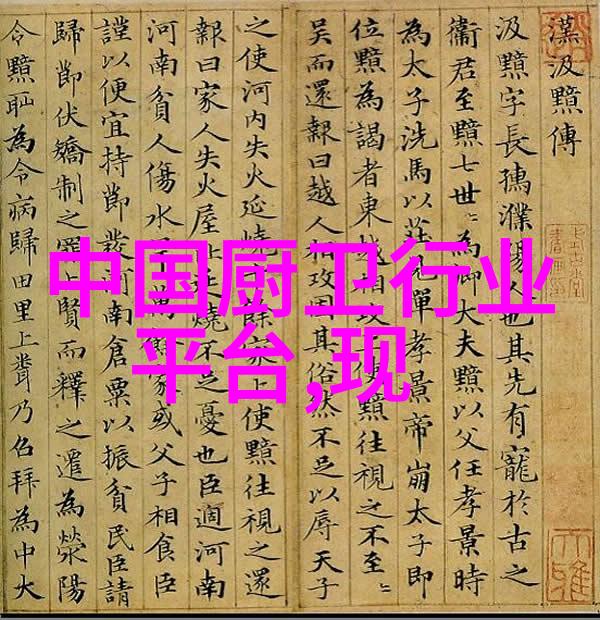 漢汲黯傳
汲黯字長孺濮陽人也其先有寵於古之
衞君至黯七世〻為卿大夫黯以父任孝景時
為太子洗馬以莊見憚孝景帝崩太子即
位黯為謁者東越相攻上使黯往視之不至〻
吳而還報曰越人相攻固其俗然不足以辱天子
之使河内失火延燒千餘家上使黯往視之還
報曰家人失火屋比延燒不足憂也臣適河南
河南貧人傷水旱萬餘家或父子相食臣
謹以便宜持節發河南倉粟以振貧民臣請
歸節伏矯制之罪上賢而釋之遷為滎陽
令黯恥為令病歸田里上聞乃召拜為中大
中国厨卫行业
平台,现